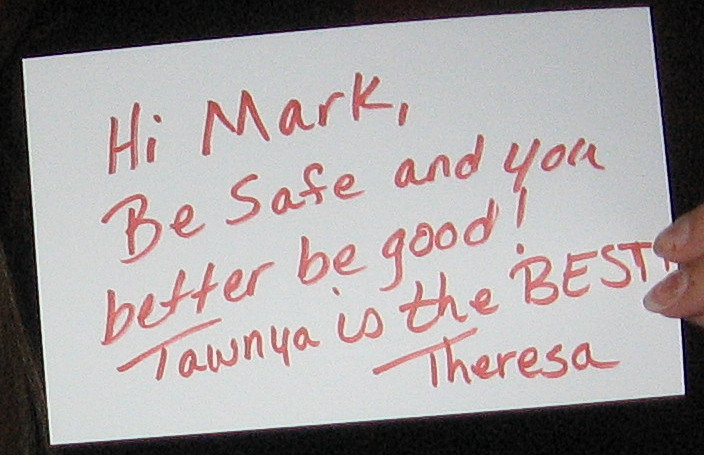 Hi Mark,
Be Safe and you
better be good!
Tawnya is the BEST!
Theresa